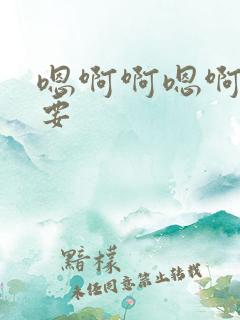 嗯啊啊嗯啊
要
黯檬
未经同意禁止转载